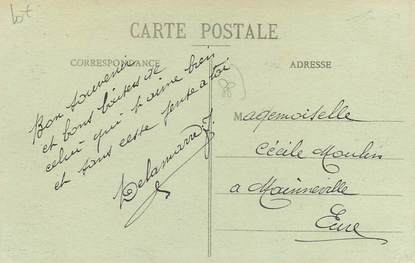 lot
CARTE POSTALE
CORRESPONDANCE
ADRESSE
Bon souvenir
et bons baisers de
celui qui t'aime bien
et sans cesse pense a toi
Delamarre J.
Mademoiselle
Cécile Moulin
a Mainneville
Eure